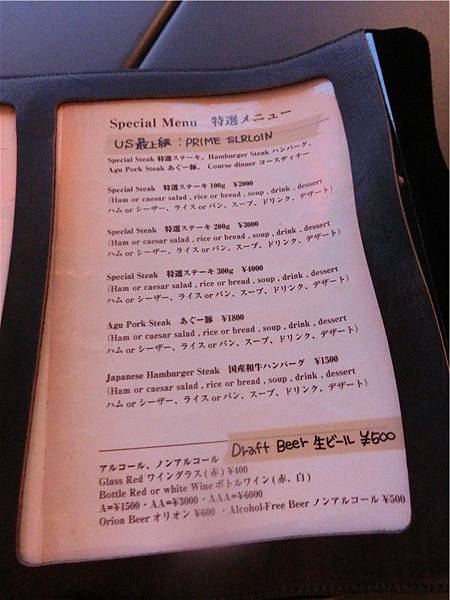 Special Menu 特選メニュー
US最上級：PRIME SLRLOIN
Special Steak 特選ステーキ、Hamburger Steak ハンバーグ、
Agu Pork Steak あぐー豚、 Course dinner コースディナー
Special Steak 特選ステーキ 100g ¥2000
(Ham or caesar salad , rice or bread , soup , drink , dessert
ハム or シーザー、ライス or パン、スープ、ドリンク、デザート)
Special Steak 特選ステーキ 200g ¥3000
(Ham or caesar salad , rice or bread , soup , drink , dessert
ハム or シーザー、ライス or パン、スープ、ドリンク、デザート)
Special Steak 特選ステーキ 300g ¥4000
(Ham or caesar salad , rice or bread , soup , drink , dessert
ハム or シーザー、ライス or パン、スープ、ドリンク、デザート)
Agu Pork Steak あぐー豚 ¥1800
(Ham or caesar salad , rice or bread , soup , drink , dessert
ハム or シーザー、ライス or パン、スープ、ドリンク、デザート)
Japanese Hamburger Steak 国産和牛ハンバーグ ¥1500
(Ham or caesar salad , rice or bread , soup , drink , dessert
ハム or シーザー、ライス or パン、スープ、ドリンク、デザート)
Draft Beer 生ビール ¥500
アルコール、ノンアルコール
Glass Red ワイングラス (赤) ¥400
Bottle Red or white Wine ボトルワイン (赤、白)
A=¥1500・AA=¥3000・AAA=¥6000
Orion Beer オリオン ¥600 ・Alcohol-Free Beer ノンアルコール ¥500